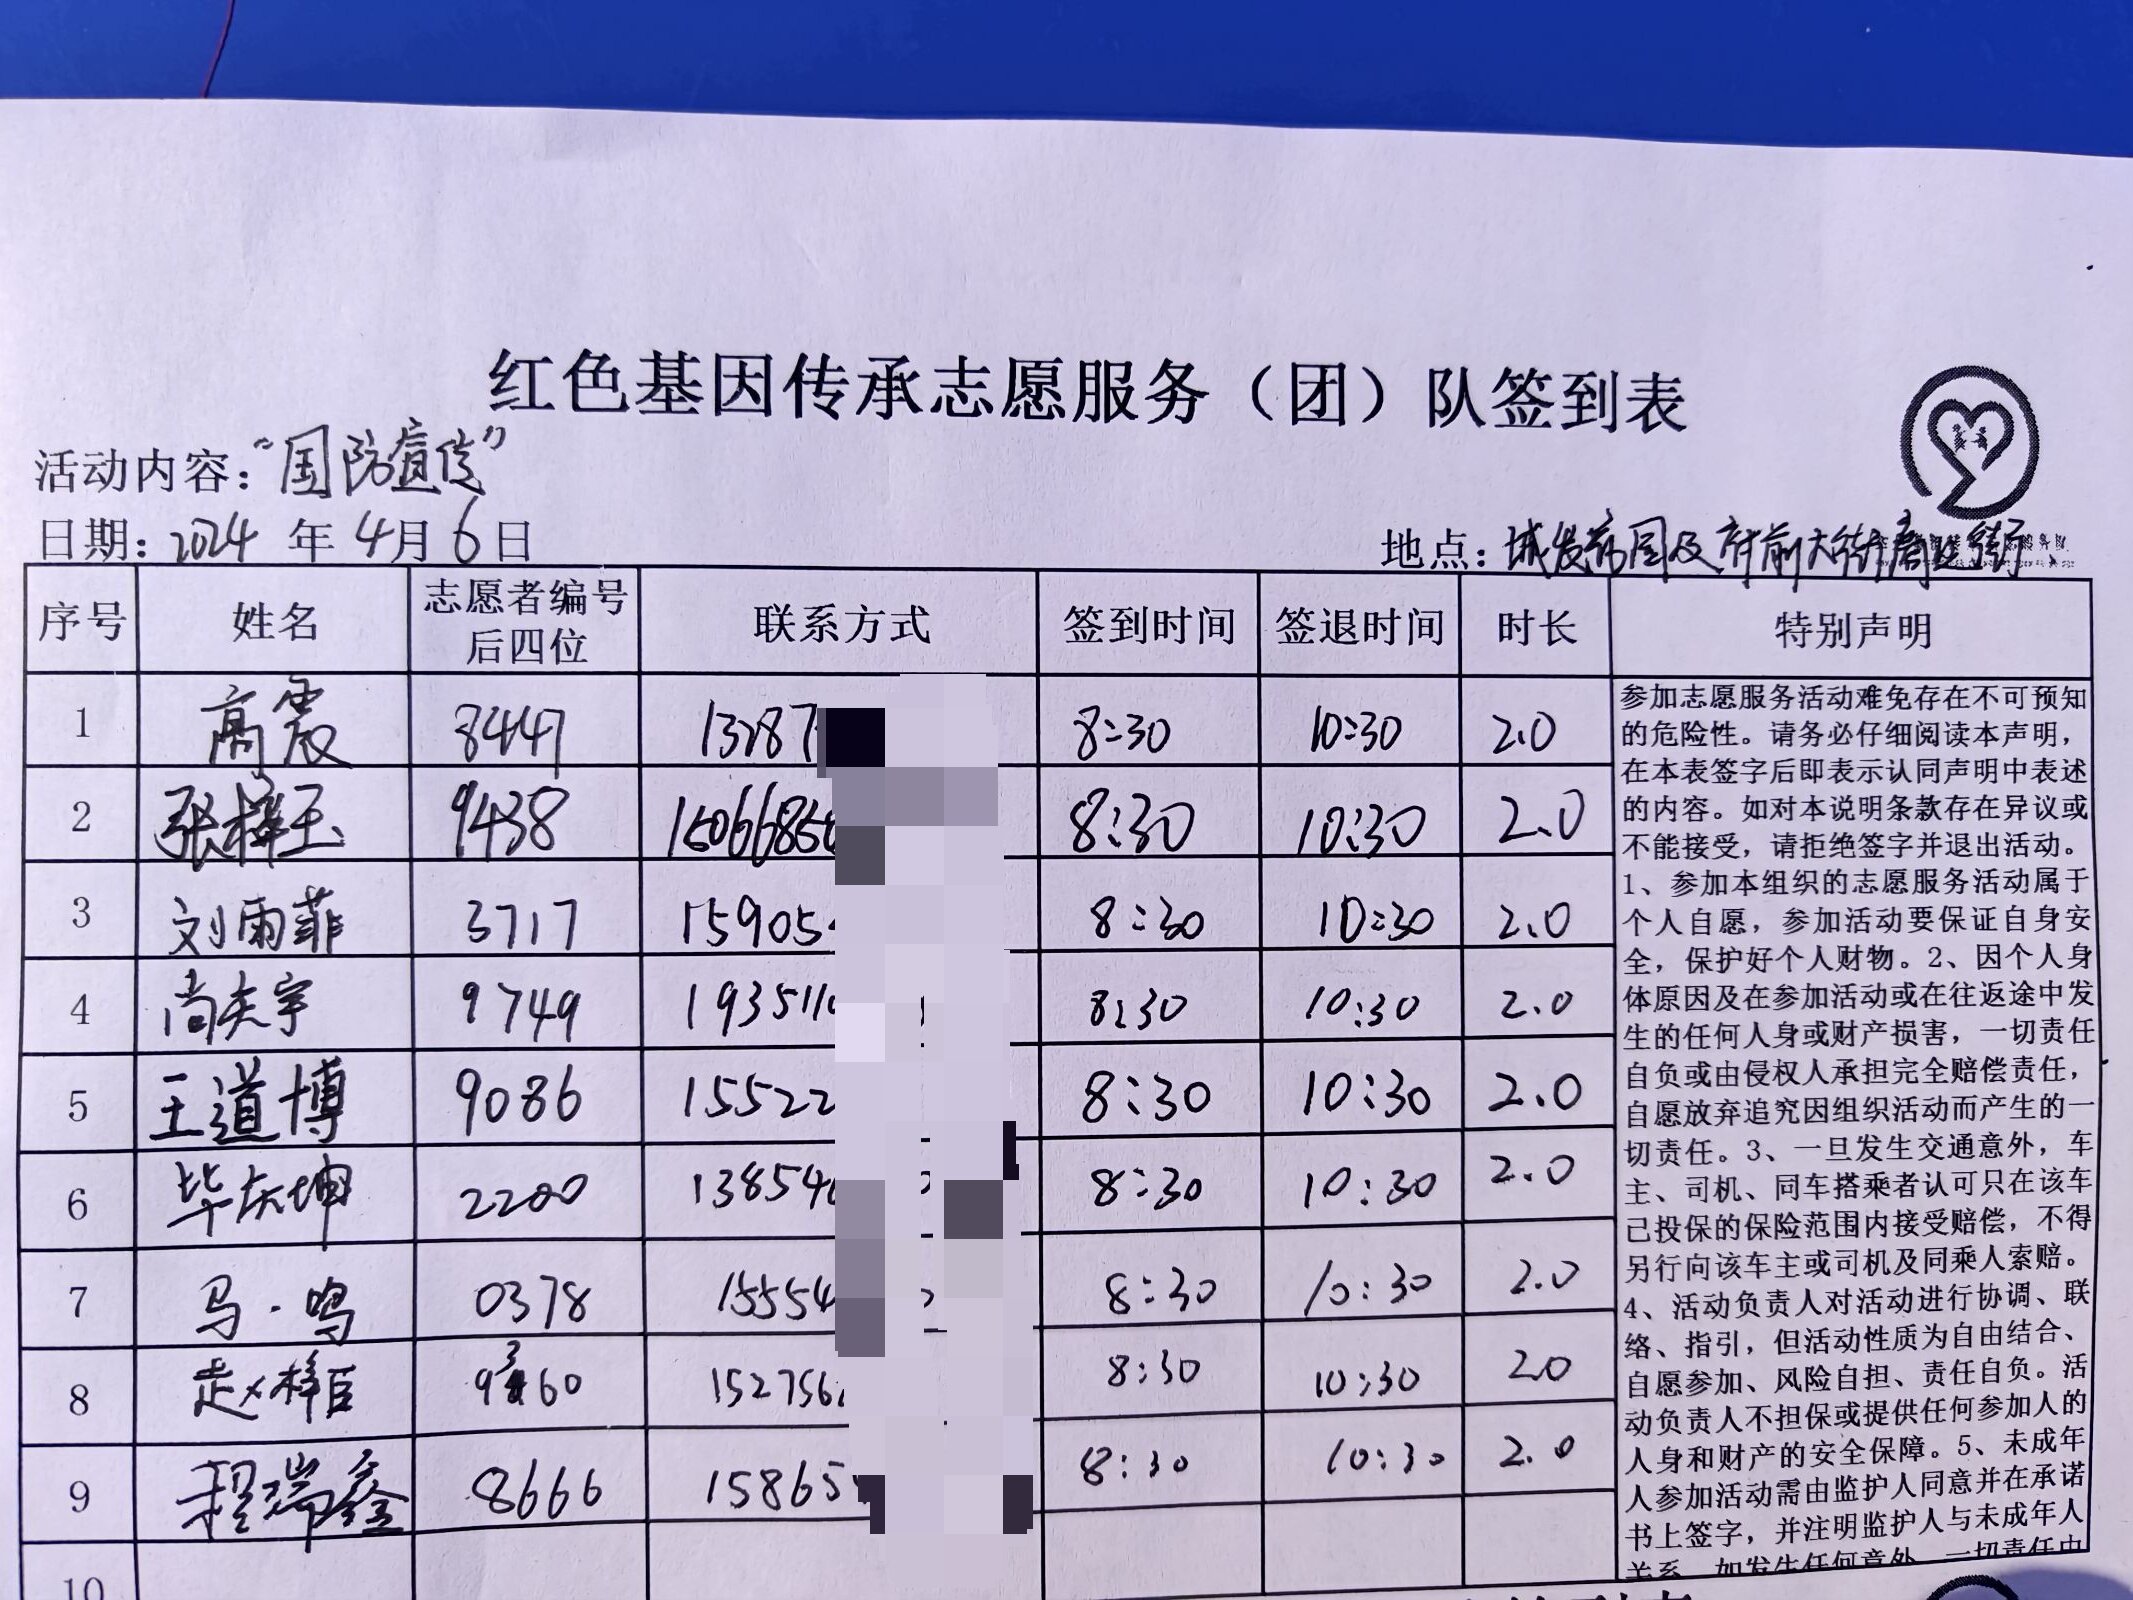 红色基因传承志愿服务（团）队签到表
活动内容：“国防宣传”
日期：2024 年 4月 6日
地点：城发 及府前大街商业街
序号 姓名 志愿者编号后四位 联系方式 签到时间 签退时间 时长 特别声明
1 高震 8447 13287 8:30 10:30 2.0
2 张梓玉 9438 1506685 8:30 10:30 2.0
3 刘雨菲 3717 15905 8:30 10:30 2.0
4 尚天宇 9749 193511 8:30 10:30 2.0
5 王道博 9086 15522 8:30 10:30 2.0
6 毕庆坤 2200 13854 8:30 10:30 2.0
7 马鸣 0378 15554 8:30 10:30 2.0
8 赵梓臣 9360 152756 8:30 10:30 2.0
9 程瑞鑫 8666 15865 8:30 10:30 2.0
10
参加志愿服务活动难免存在不可预知
的危险性。请务必仔细阅读本声明，
在本表签字后即表示认同声明中表述
的内容。如对本说明条款存在异议或
不能接受，请拒绝签字并退出活动。
1、参加本组织的志愿服务活动属于
个人自愿，参加活动要保证自身安
全，保护好个人财物。2、因个人身
体原因及在参加活动或在往返途中发
生的任何人身或财产损害，一切责任
自负或由侵权人承担完全赔偿责任，
自愿放弃追究因组织活动而产生的一
切责任。3、一旦发生交通意外，车
主、司机、同车搭乘者认可只在该车
已投保的保险范围内接受赔偿，不得
另行向该车主或司机及同乘人索赔。
4、活动负责人对活动进行协调、联
络、指引，但活动性质为自由结合、
自愿参加、风险自担、责任自负。活
动负责人不担保或提供任何参加人的
人身和财产的安全保障。5、未成年
人参加活动需由监护人同意并在承诺
书上签字，并注明监护人与未成年人
关系。如发生任何意外，一切责任由